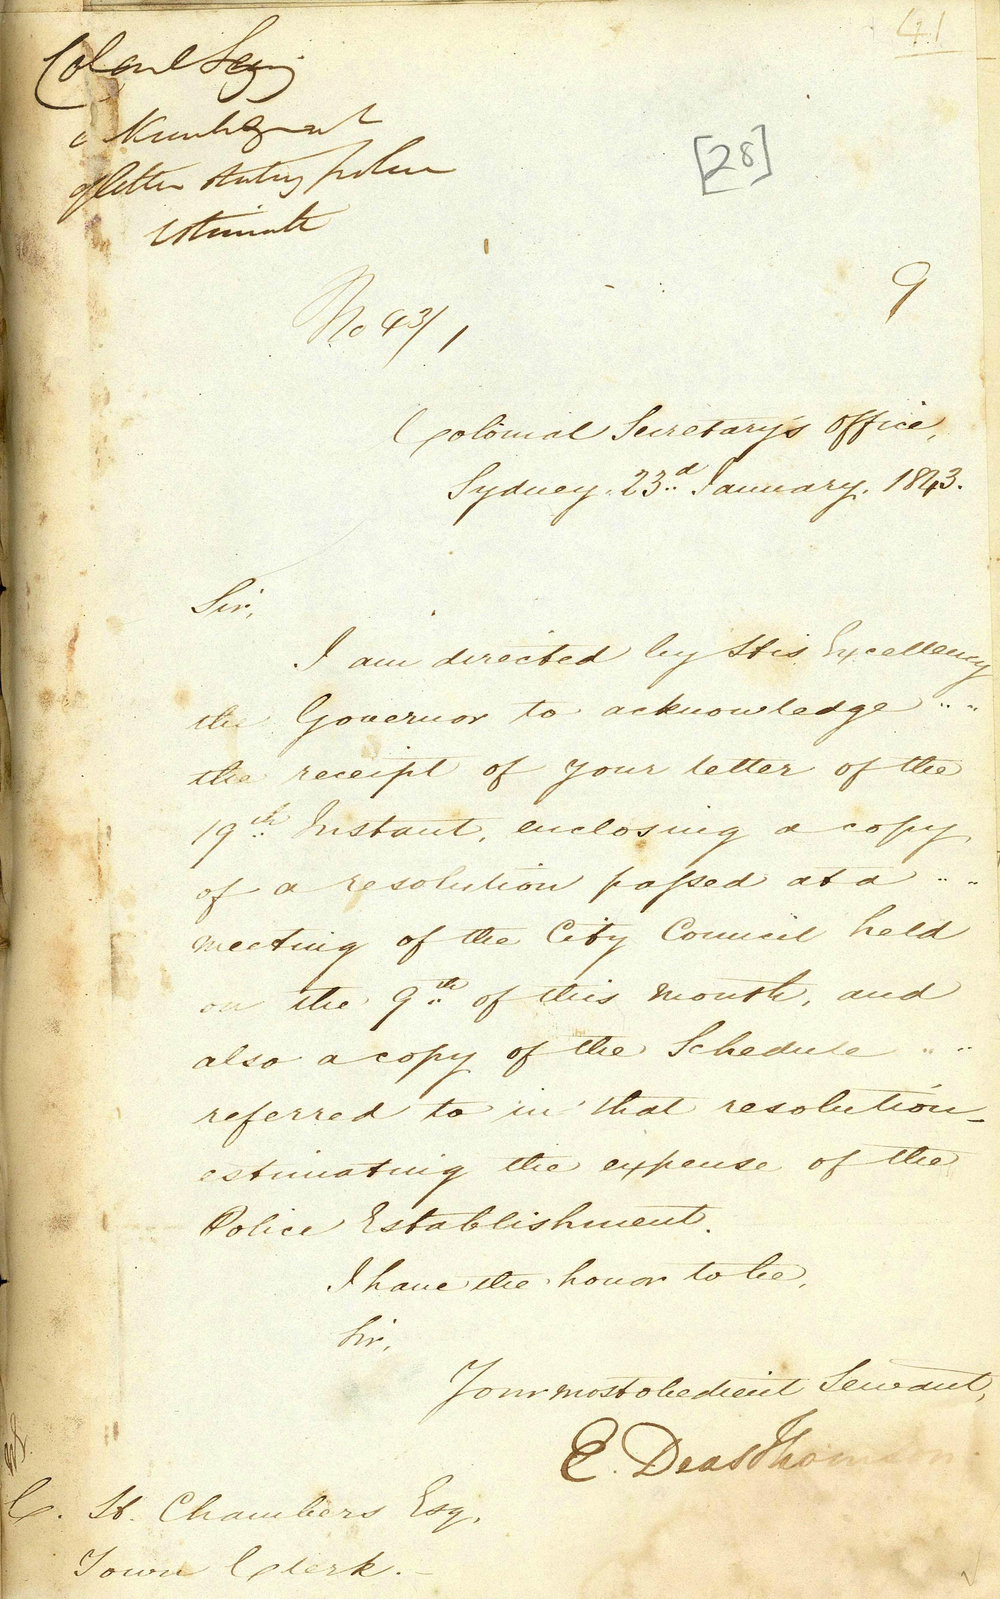 41
Colonel Secy
acknowledgment
of letter stating police
estimate
[28]
9
No 43/1
Colonial Secretary's Office,
Sydney. 23.d January. 1843.
Sir,
I am directed by His Excellency
the Governor to acknowledge
the receipt of your letter of the
19th Instant, enclosing a copy
of a resolution passed at a
meeting of the City Council held
on the 9th of this month, and
also a copy of the Schedule
referred to in that resolution
estimating the expense of the
Police Establishment.
I have the honor to be,
Sir,
Your most obedient Servant,
E. Deas Thomson
C. H. Chambers Esq,
Town Clerk.